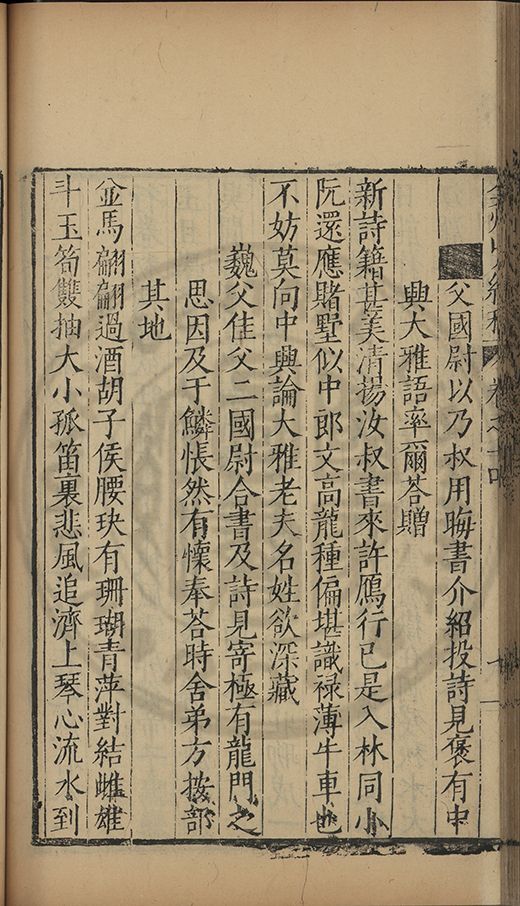 父國尉以乃叔用晦書介紹投詩見褒有中
興大雅語率爾荅贈
新詩籍甚美清揚汝叔書來許鴈行已是入林同小
阮還應賭墅似中郎文高龍種偏堪識祿薄牛車也
不妨莫向中興論大雅老夫名姓欲深藏
巍父佳父二國尉合書及詩見寄極有龍門之
思因及于鱗悵然有懷奉荅時舍弟方按部
其地
金馬翩翩過酒胡子侯腰玦有珊瑚青萍對結雌雄
斗玉筍雙抽大小孤笛裏悲風追濟上琴心流水到